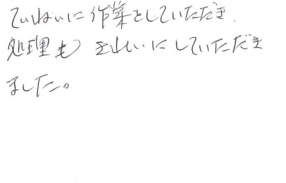 ていねいに作業をしていただき、
処理も きれいにしていただき
ました。